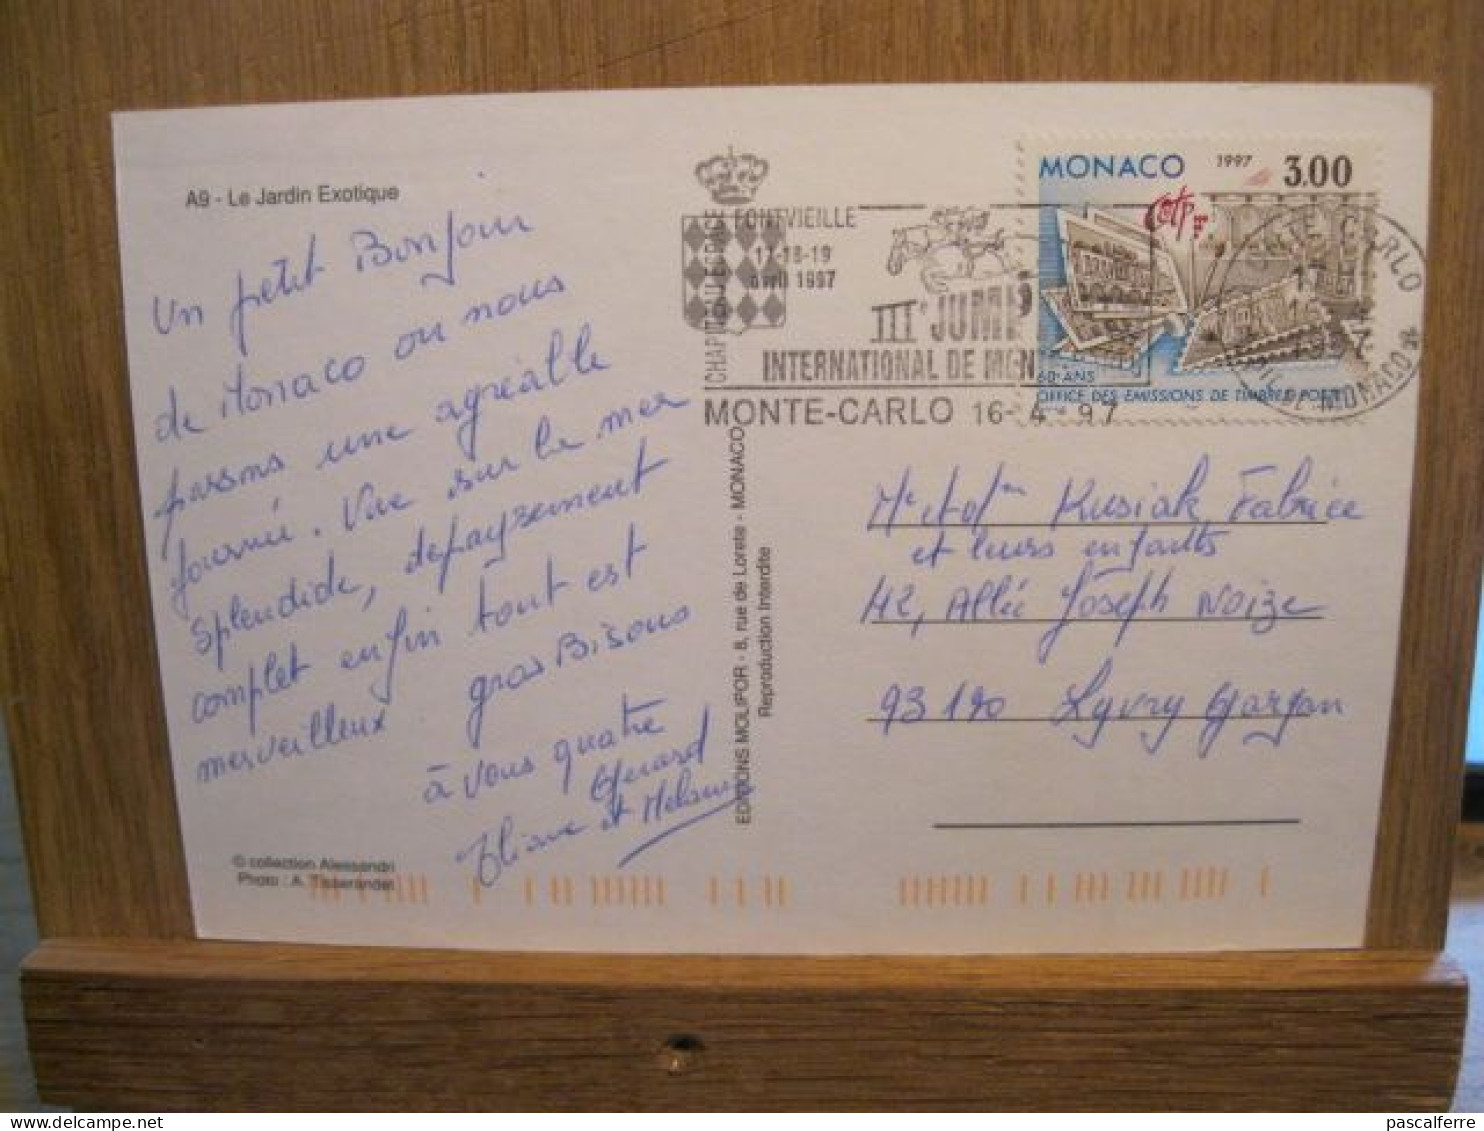 A9 - Le Jardin Exotique
Un petit Bonjour
de Monaco ou nous
passons une agréable
journée. Vue sur la mer
splendide, depaysement
complet enfin tout est
merveilleux. gros Bisous
à vous quatre
Gérard
et
© collection Alessandri
Photo : A. Tisserandet
EDITIONS MOLIPOR - 8, rue de Lorete - MONACO
Reproduction Interdite
CHAPITEAU ESPACE FONTVIEILLE
17-18-19
avril 1997
IIIe JUMP
INTERNATIONAL DE MON
MONTE-CARLO 16-4-97
MONACO 1997 3.00
60 ANS
OFFICE DES EMISSIONS DE TIMBRES-POSTE
MONTE CARLO
17
1997
MONACO
Kusiak Fabrice
et leurs enfants
42, Allée Joseph Noize
93190 Lyvry Gargan
pascalferre